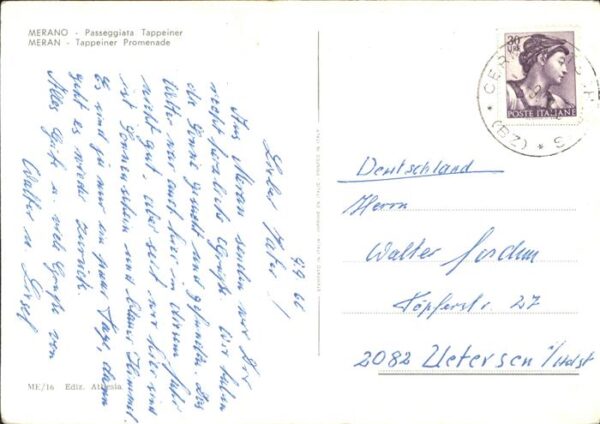 MERANO - Passeggiata Tappeiner
MERAN - Tappeiner Promenade
9.9.66
Lieber Vater!
Aus Meran senden wir Dir
recht herzliche Grüße. Wir haben
die Sonne gesucht und gefunden. Das
Wetter war auch hier in diesem Jahr
nicht gut, aber seit wir hier sind
ist Sonnenschein und blauer Himmel.
Es sind ja nur ein paar Tage, dann
geht es wieder zurück.
Alles Gute u. viele Grüße von
Walter u. Liesel
ME/16 Ediz. Athesia
30 LIRE
POSTE ITALIANE
(BZ)
Deutschland
Herrn
Walter
Töpferstr. 27
2082 Uetersen i/Holst